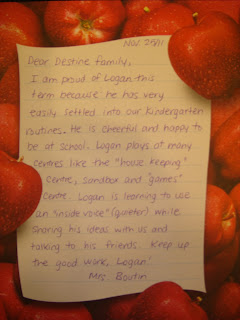 Nov. 25/11
Dear Destine Family,
I am proud of Logan this
term because he has very
easily settled into our Kindergarten
routines. He is cheerful and happy to
be at school. Logan plays at many
centres like the "house keeping"
centre, sandbox and "games"
centre. Logan is learning to use
an "inside voice" (quieter) while
sharing his ideas with us and
talking to his friends. Keep up
the good work, Logan!
Mrs. Boutin